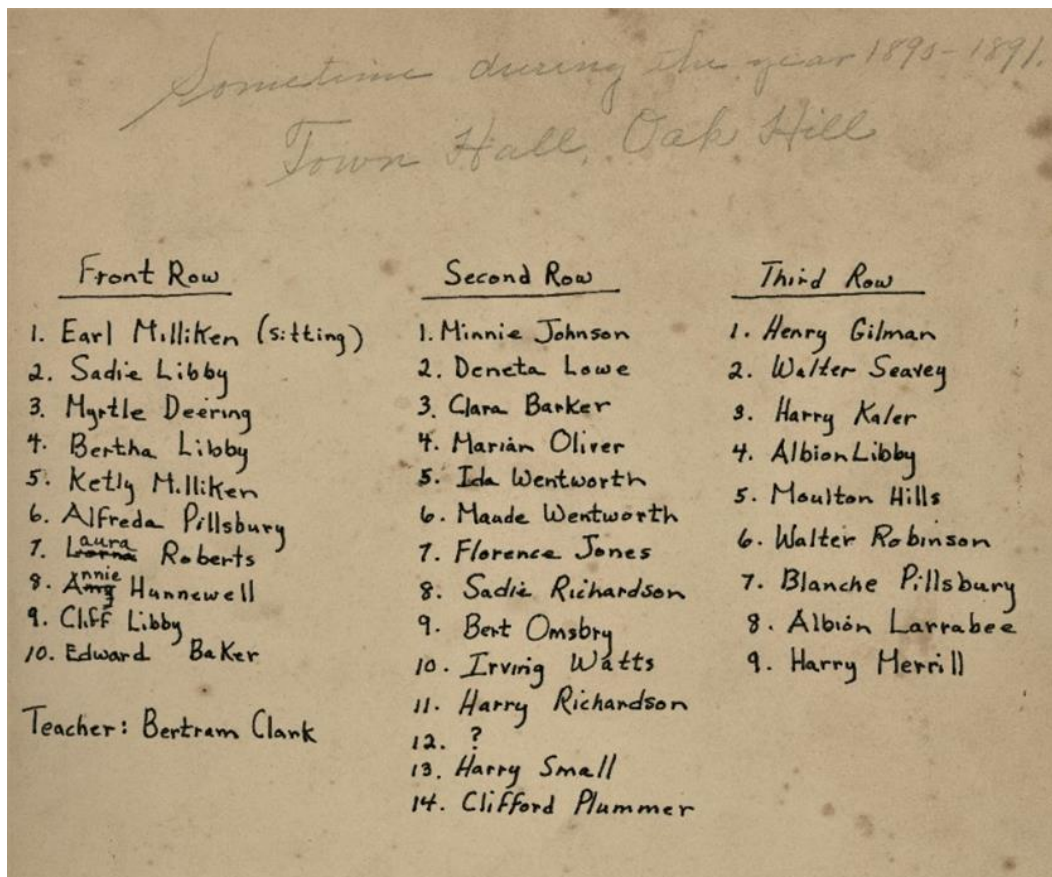 Sometime during the year 1890-1891.
Town Hall, Oak Hill
Front Row
1. Earl Milliken (sitting)
2. Sadie Libby
3. Myrtle Deering
4. Bertha Libby
5. Ketly Milliken
6. Alfreda Pillsbury
7. Laura Roberts
8. Annie Hunnewell
9. Cliff Libby
10. Edward Baker
Teacher: Bertram Clark
Second Row
1. Minnie Johnson
2. Deneta Lowe
3. Clara Barker
4. Marian Oliver
5. Ida Wentworth
6. Maude Wentworth
7. Florence Jones
8. Sadie Richardson
9. Bert Omsbry
10. Irving Watts
11. Harry Richardson
12. ?
13. Harry Small
14. Clifford Plummer
Third Row
1. Henry Gilman
2. Walter Seavey
3. Harry Kaler
4. Albion Libby
5. Moulton Hills
6. Walter Robinson
7. Blanche Pillsbury
8. Albion Larrabee
9. Harry Merrill